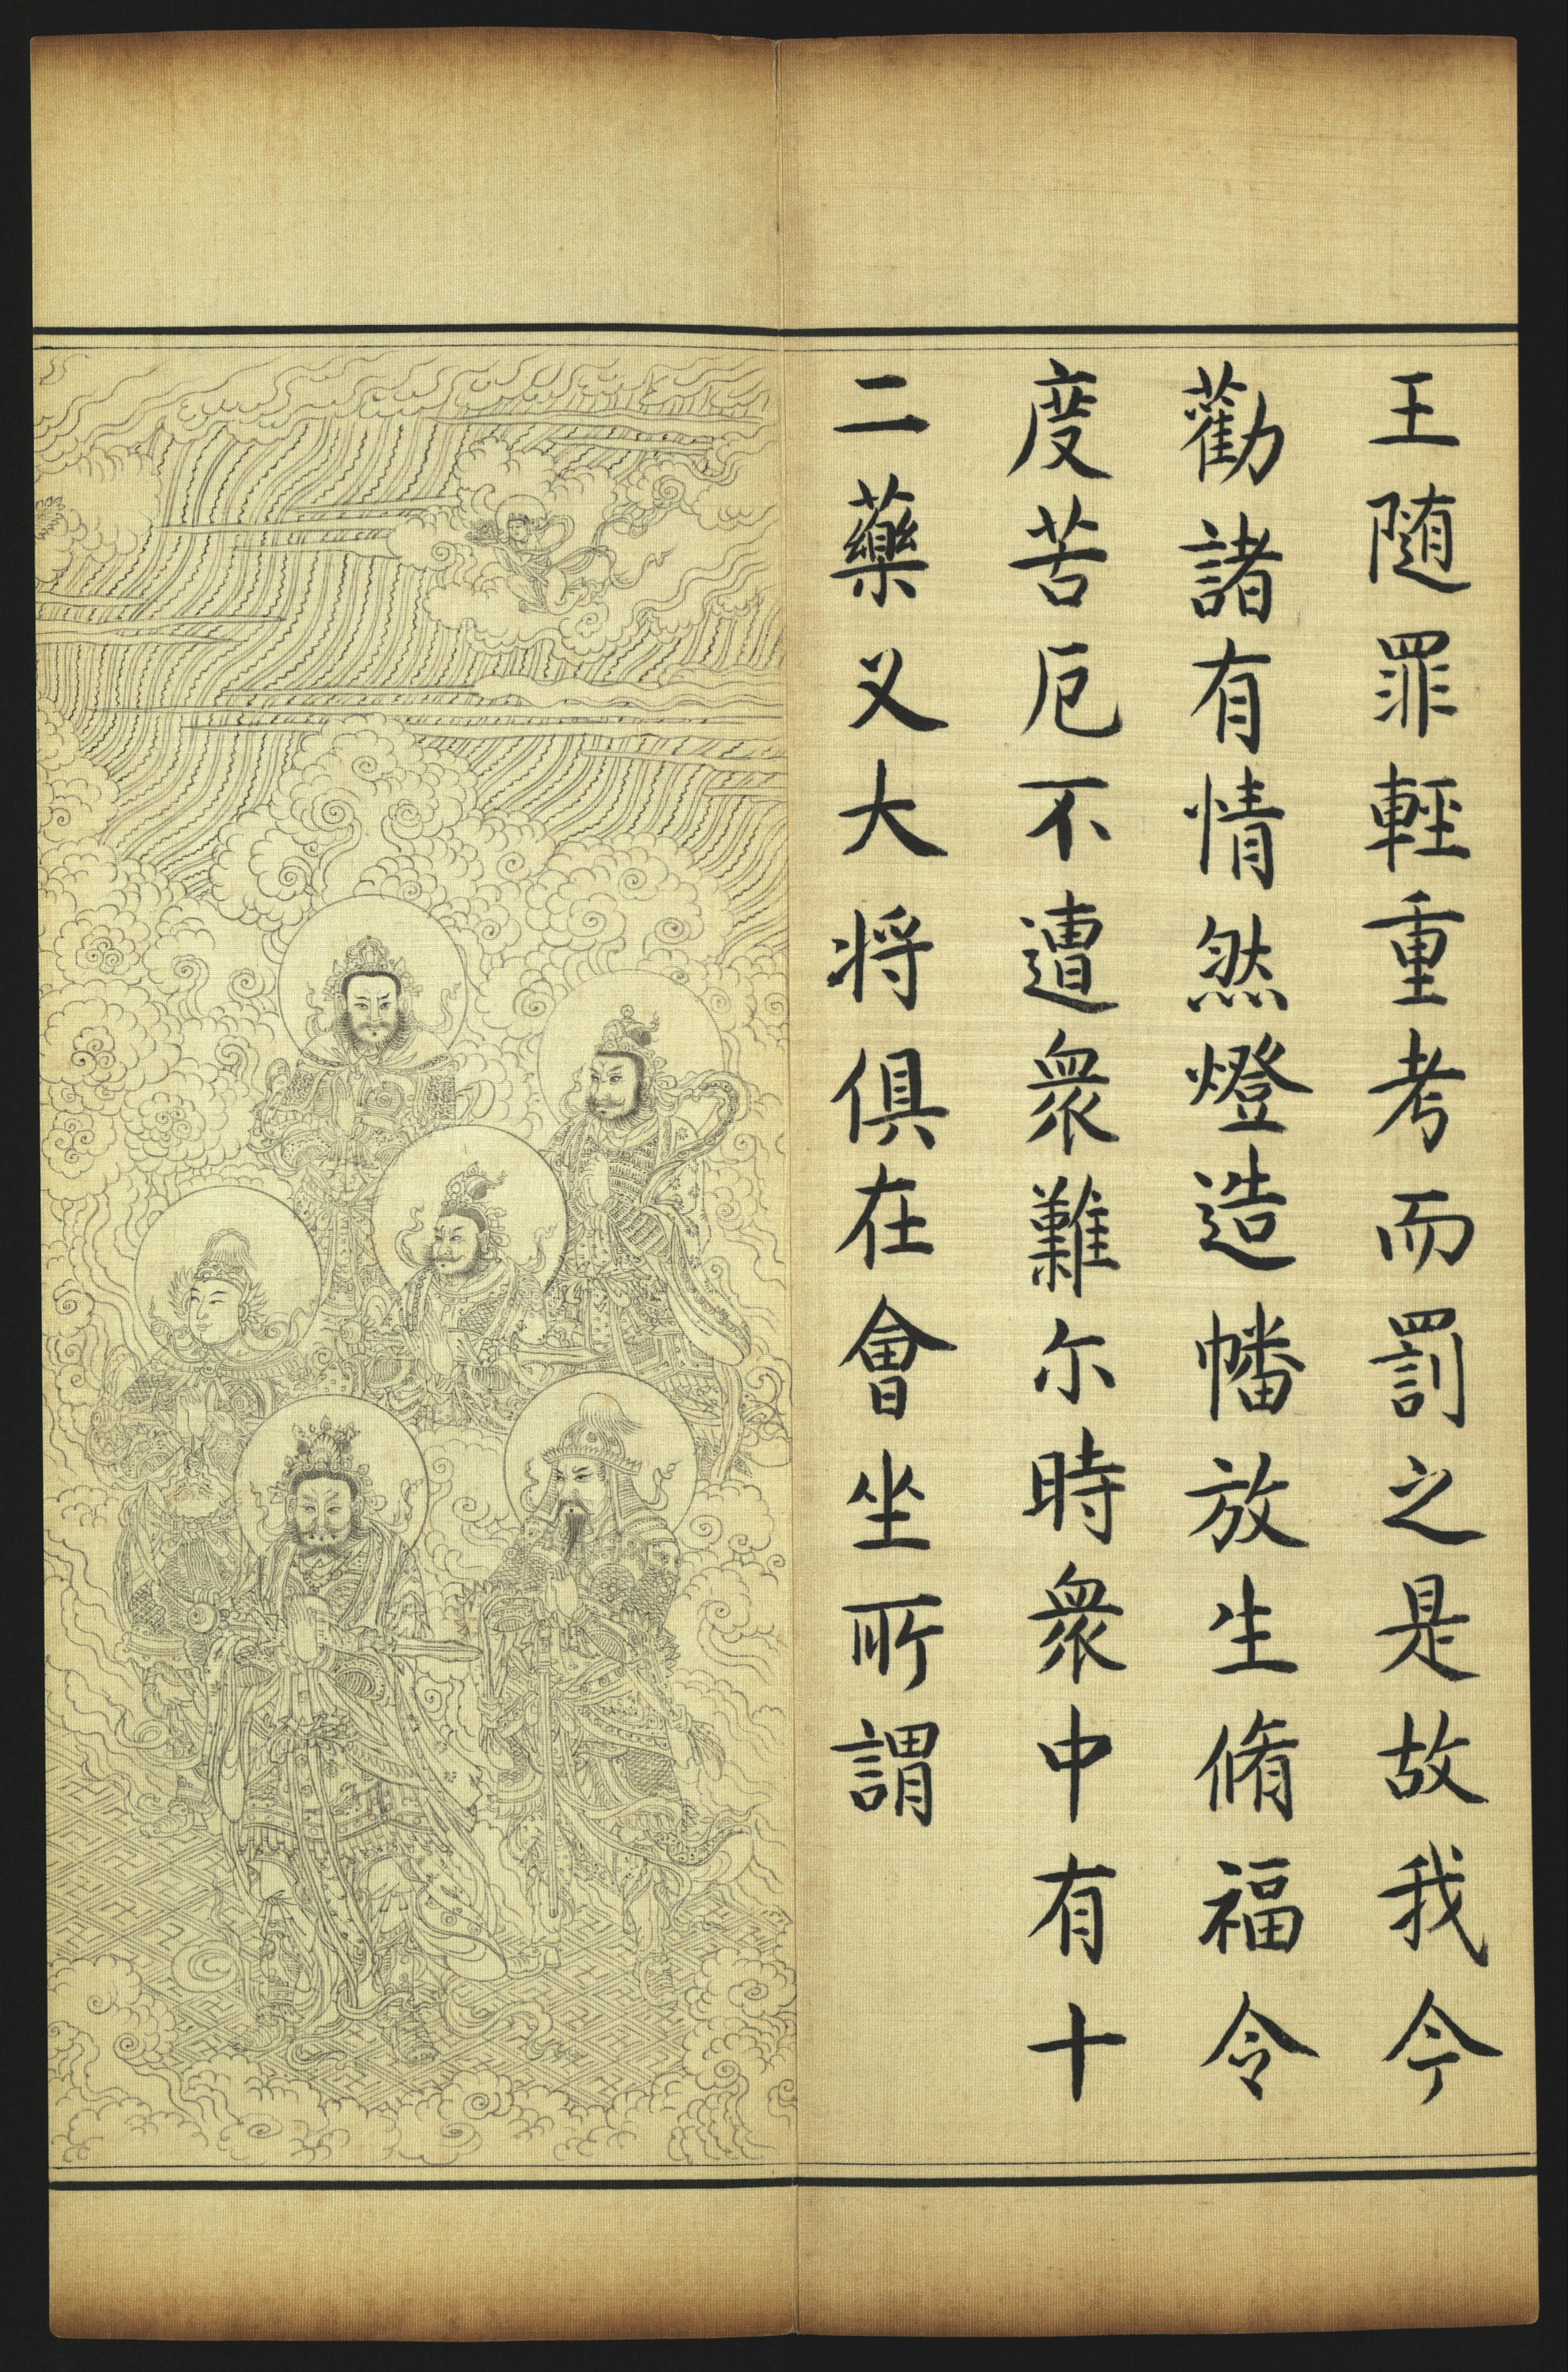 王随罪輕重考而罰之是故我今
勸諸有情然燈造幡放生脩福令
度苦厄不遭衆難尒時衆中有十
二藥叉大将俱在會坐所謂